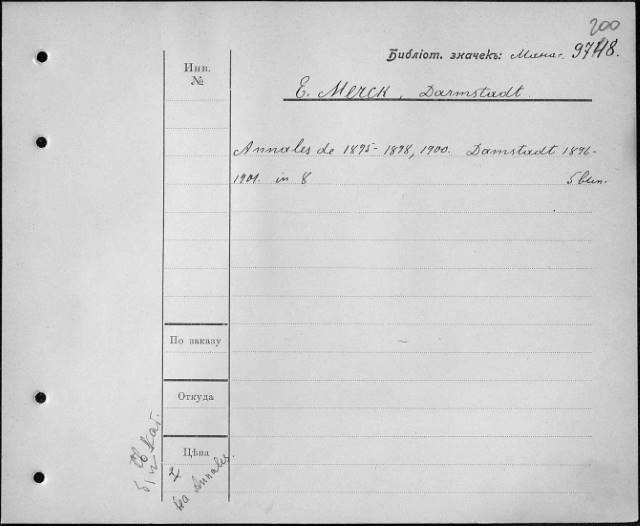 200
Библіот. значекъ: Магаз. 9748.
Инв.
№
E. Merck, Darmstadt.
Annales de 1895-1898, 1900. Damstadt 1896-
1901. in 8 5 вып.
По заказу
Откуда
Цѣна
Annales